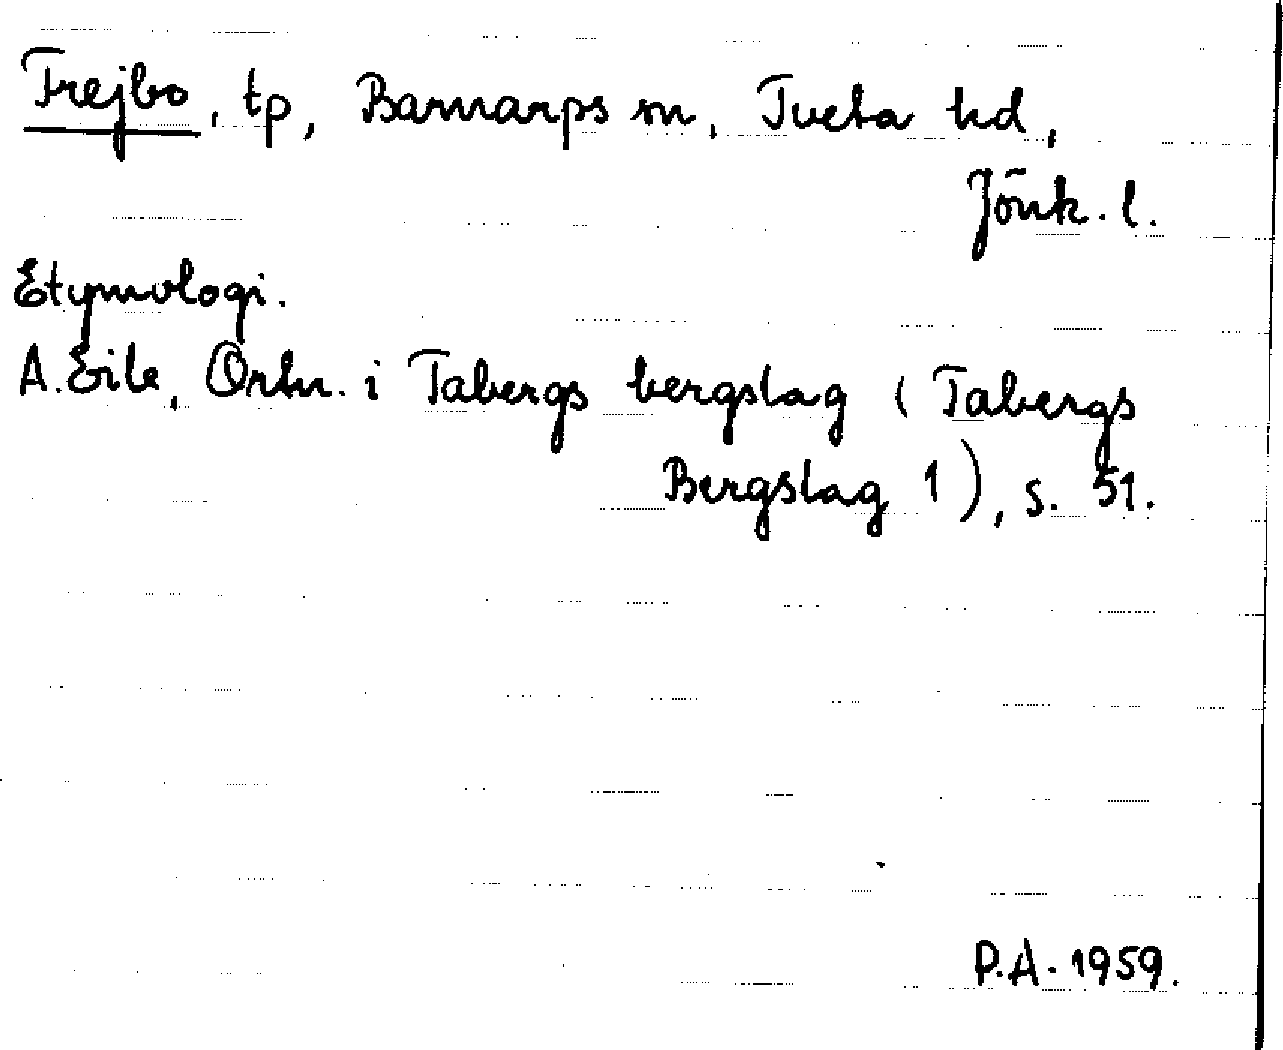 Frejbo, tp, Barnarps sn, Tveta hd,
Jönk. l.
Etymologi.
A. Eile, Ortn. i Tabergs bergslag (Tabergs
Bergslag 1), s. 51.
P.A. 1959.